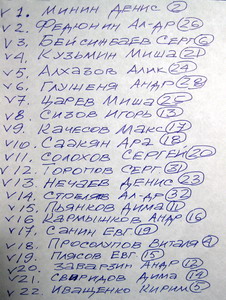 V 1. Минин Денис 2
V 2. Федюнин Ал-др 26
V 3. Бейсинбаев Серг 6
V 4. Кузьмин Миша 21
V 5. Алхазов Алик 24
V 6. Глушеня Андр 28
V 7. Царев Миша 25
V 8. Сизов Игорь 13
V 9. Качесов Макс 17
V 10. Саакян Ара 18
V 11. Солохов Сергей 20
V 12. Торопов Серг 31
V 13. Нечаев Денис 23
V 14. Ал-др 32
V 15. Пьянков Дима 11
V 16. Кармышков Андр 16
V 17. Санин Евг 19
V 18. Просолупов Виталя
V 19. Плясов Евг. 15
V 20. Заварзин Андр 12
V 21. Свиридов Дима 14
V 22. Иващенко Кирим 5